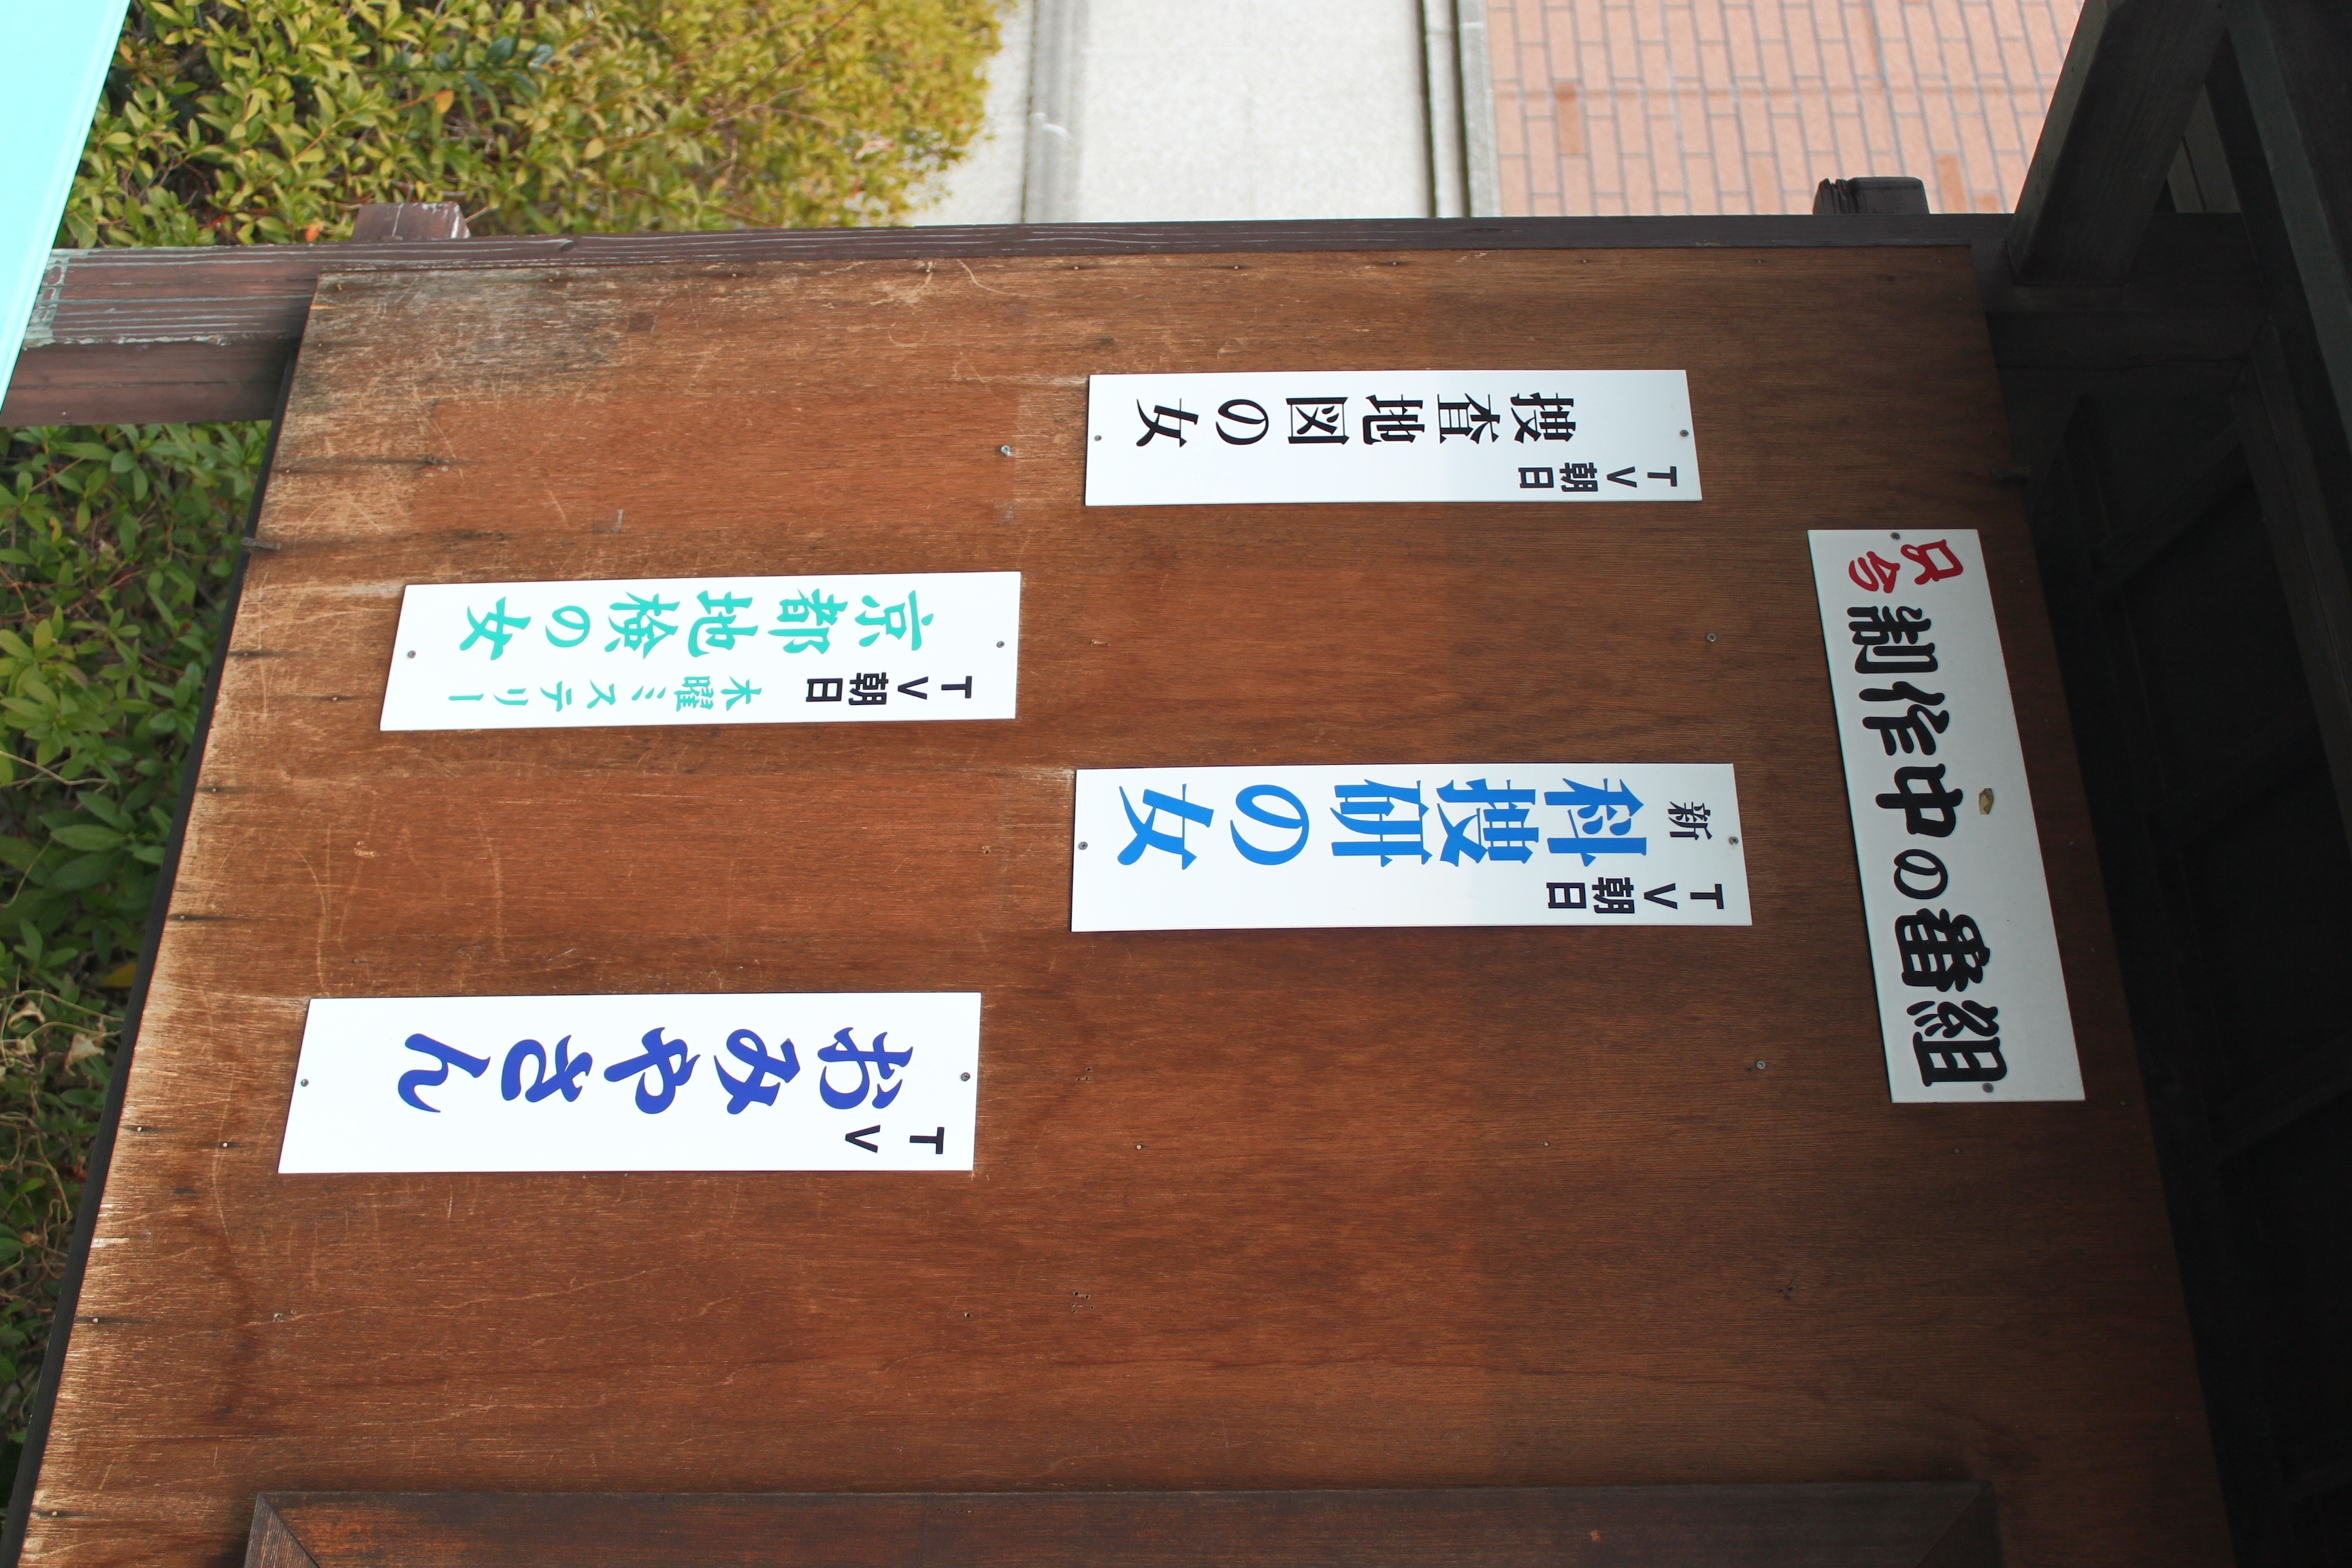 只今
制作中の番組
TV朝日
新科捜研の女
TV朝日
捜査地図の女
TV
おみやさん
TV朝日 木曜ミステリー
京都地検の女